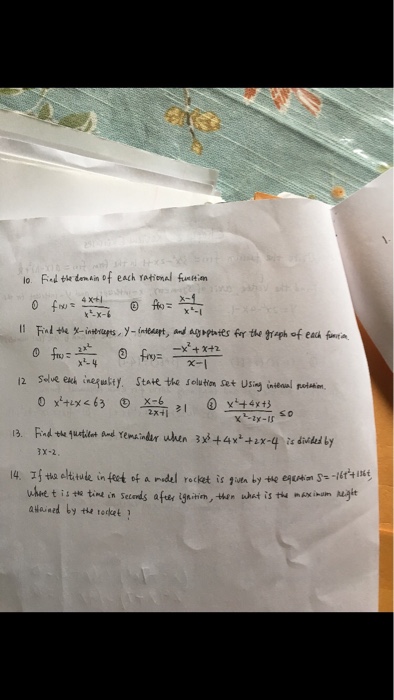 10. Find the domain of each rational function
① f(x) = (4x+1)/(x²-x-6) ② f(x) = (x-9)/(x²-1)
11 Find the x-intercepts, y-intercept, and asymptotes for the graph of each function.
① f(x) = 2x²/(x²-4) ② f(x) = (-x²+x+2)/(x-1)
12 Solve each inequality. State the solution set using interval notation.
① x²+2x<63 ② (x-6)/(2x+1) ≥1 ③ (x²+4x+3)/(x²-2x-15) ≤0
13. Find the quotient and remainder when 3x³+4x²+2x-4 is divided by
3x-2.
14. If the altitude in feet of a model rocket is given by the equation S=-16t²+
where t is the time in seconds after ignition, then what is the maximum height
attained by the rocket ?